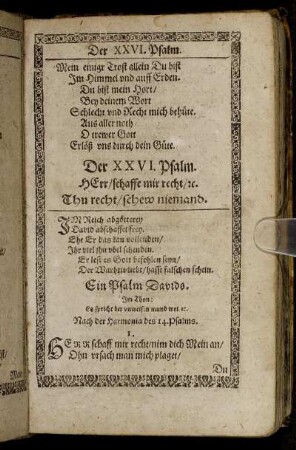 Der XXVI. Psalm.
Mein einige Trost allein Du bist
Im Himmel vnd auff Erden.
Du bist mein Hort/
Bey deinem Wort
Schlecht vnd Recht mich behüte.
Aus aller noth
O trewer Gott
Erlöß vns durch dein Güte.
Der XXVI. Psalm.
HErr/schaffe mir recht/ꝛc.
Thu recht/schew niemand.
IM Reich abgötterey
David abschaffet frey.
Ehe Er das kan vollenden/
Ihr viel jhn vbel schenden.
Er lest es Gott befohlen seyn/
Der Warheit liebt/hasst falschen schein.
Ein Psalm Davids.
Im Thon:
Es spricht der vnweisen mund wol ꝛc.
Nach der Harmonia des 14. Psalms.
1.
HERR schaff mir recht/nim dich Mein an/
Ohn vrsach man mich plaget/
Du